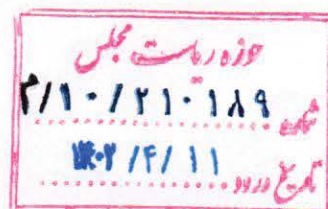 حوزه ریاست مجلس
شماره ۳/۱۰/۲۱۰۱۸۹
تاریخ ورود ۱۴۰۲/۴/۱۱